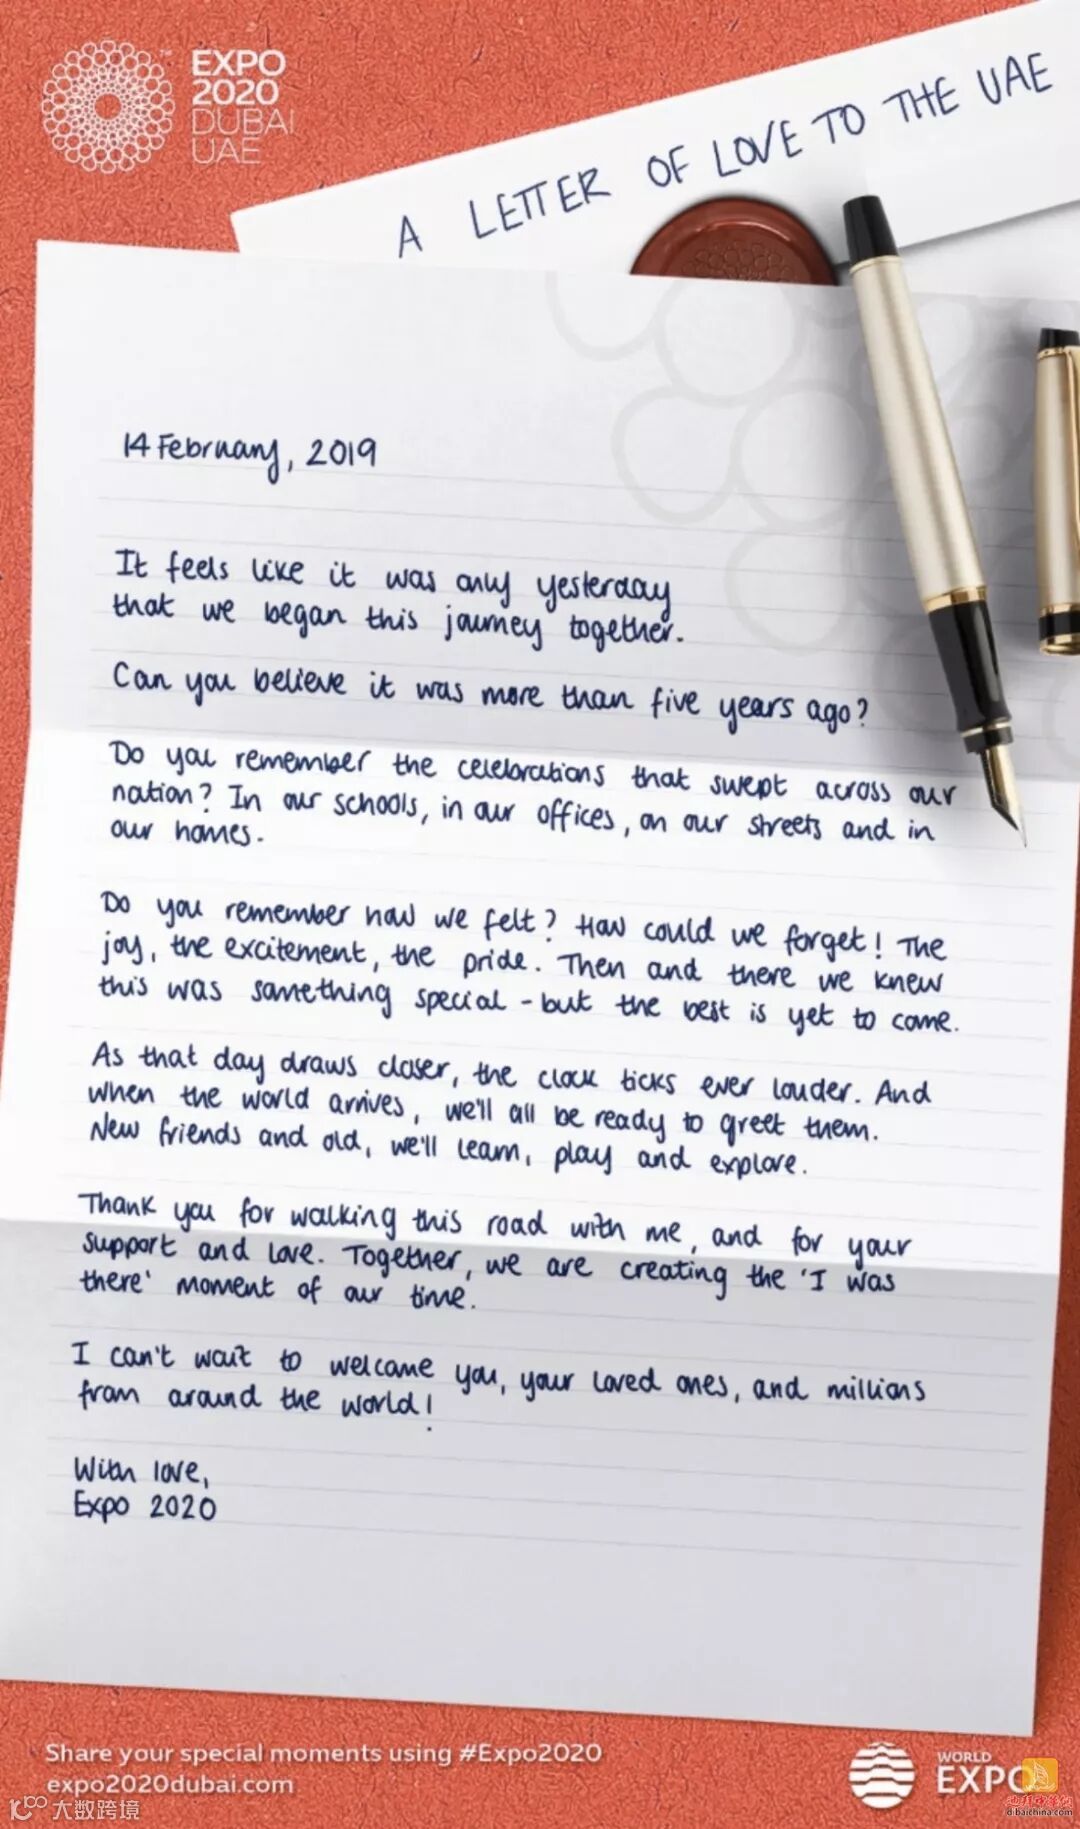 EXPO
2020
DUBAI
UAE
A LETTER OF LOVE TO THE UAE
14 February, 2019
It feels like it was only yesterday
that we began this journey together.
Can you believe it was more than five years ago?
Do you remember the celebrations that swept across our
nation? In our schools, in our offices, on our streets and in
our homes.
Do you remember how we felt? How could we forget! The
joy, the excitement, the pride. Then and there we knew
this was something special - but the best is yet to come.
As that day draws closer, the clock ticks ever louder. And
when the world arrives, we'll all be ready to greet them.
New friends and old, we'll learn, play and explore.
Thank you for walking this road with me, and for your
support and love. Together, we are creating the 'I was
there' moment of our time.
I can't wait to welcome you, your loved ones, and millions
from around the world!
With love,
Expo 2020
Share your special moments using #Expo2020
expo2020dubai.com
WORLD
EXPO
大数跨境
dibaichina.com